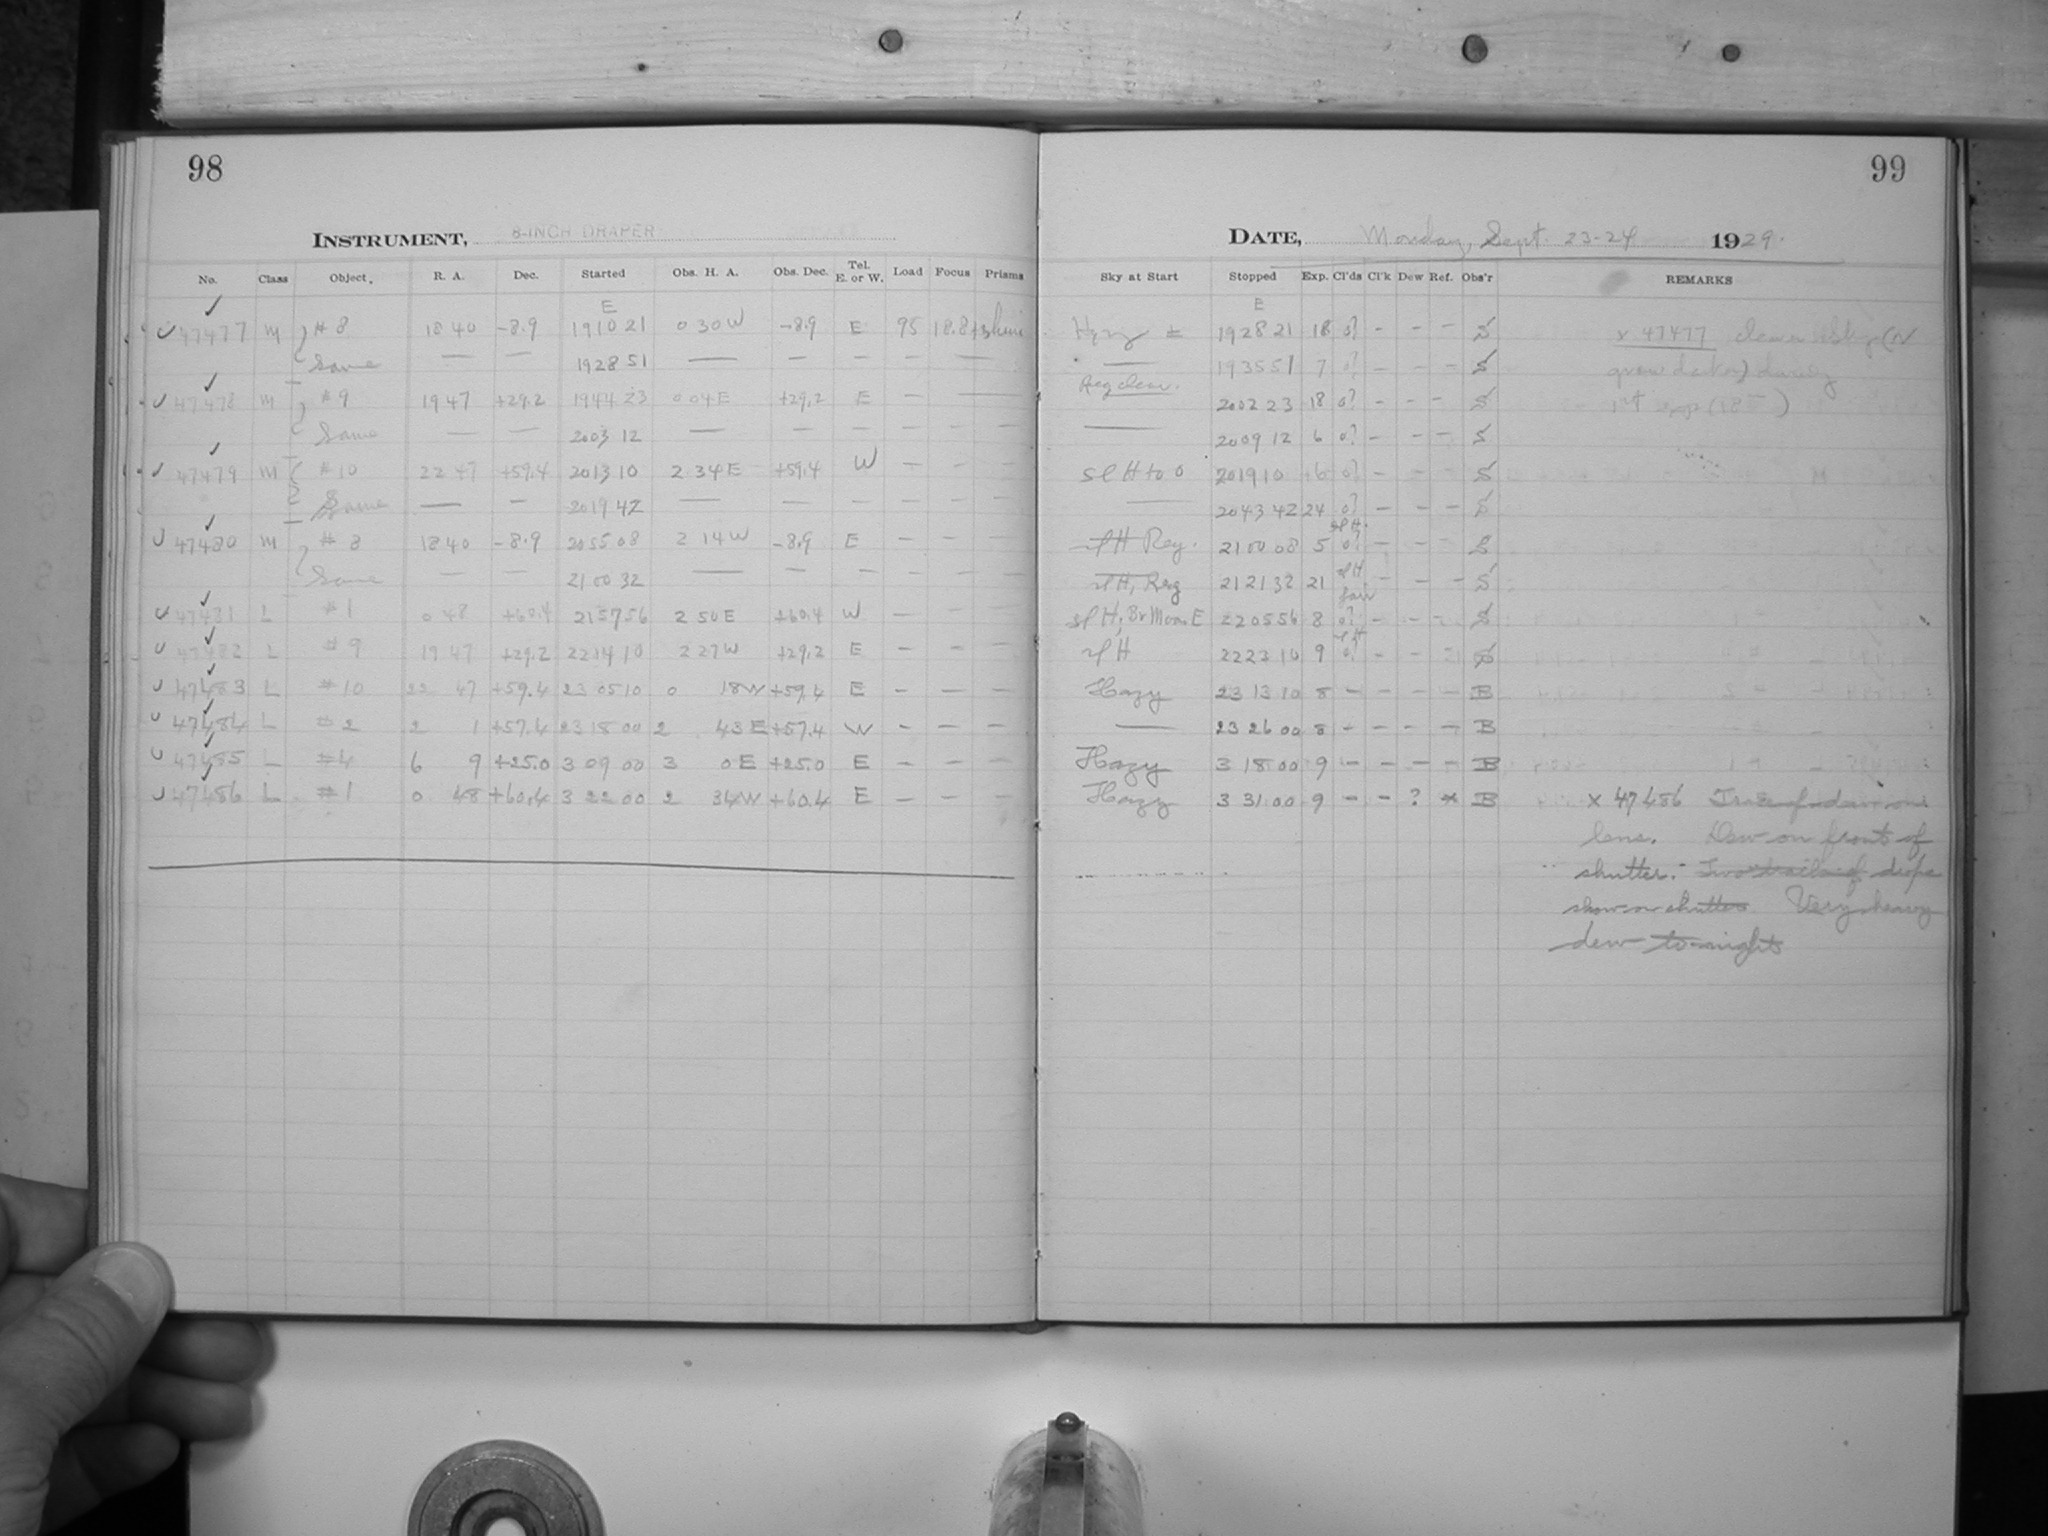 98
INSTRUMENT, 8-INCH DRAPER
No. Class Object, R. A. Dec. Started Obs. H. A. Obs. Dec. Tel. E. or W. Load Focus Prisms
E
47477 M #8 18 40 -8.9 19 10 21 0 30 W -8.9 E 95 18.8
Same — — 19 28 51 — — — — — —
47478 M #9 19 47 +29.2 19 44 23 0 04 E +29.2 E — —
Same — — 20 03 12 — — — — — —
47479 M #10 22 47 +59.4 20 13 10 2 34 E +59.4 W — — —
Same — — 20 19 42 — — — — — —
47480 M #8 18 40 -8.9 20 55 08 2 14 W -8.9 E — — —
Same — — 21 00 32 — — — — — —
47481 L #1 0 48 +60.4 21 57 56 2 50 E +60.4 W — — —
47482 L #9 19 47 +29.2 22 14 10 2 27 W +29.2 E — — —
47483 L #10 22 47 +59.4 23 05 10 0 18 W +59.4 E — — —
47484 L #2 2 1 +57.4 23 18 00 2 43 E +57.4 W — — —
47485 L #4 6 9 +25.0 3 09 00 3 0 E +25.0 E — — —
47486 L #1 0 48 +60.4 3 22 00 2 34 W +60.4 E — — —
99
DATE, Monday, Sept. 23-24 1929.
Sky at Start Stopped Exp. Cl'ds Cl'k Dew Ref. Obs'r REMARKS
E
Hazy ± 19 28 21 18 0? — — — S x 47477
— 19 35 51 7 0? — — — S
20 02 23 18 0? — — — S
— 20 09 12 6 0? — — — S
sl H to 0 20 19 10 6 0? — — — S
— 20 43 42 24 0? — — — S
sl H 21 00 08 5 0? — — — S
sl H, 21 21 32 21 sl H — — — S
sl H, Br Moon E 22 05 56 8 0? — — — S
sl H 22 23 10 9 0? — — — S
Hazy 23 13 10 8 — — — — B
— 23 26 00 8 — — — — B
Hazy 3 18 00 9 — — — — B
Hazy 3 31 00 9 — — ? x B x 47486 Trace of dew on
lens. Dew on front of
shutter. Two trails of drops
show on shutter Very heavy
dew to-night